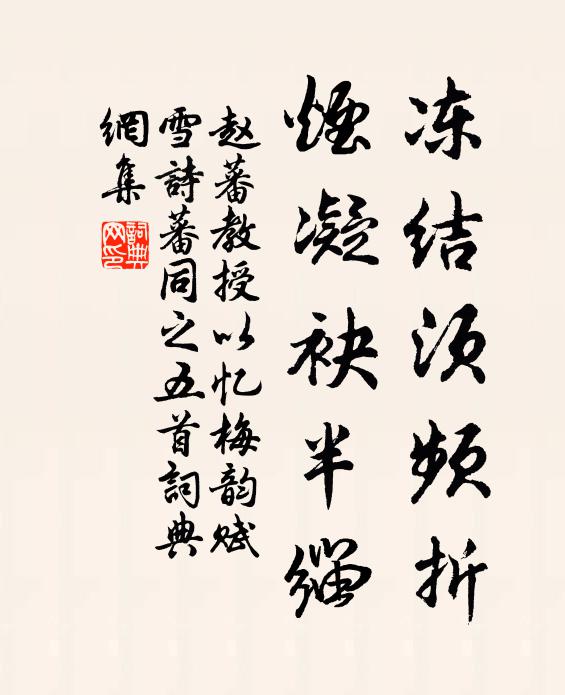 冻结须频折
煙凝袂半缁
赵蕃教授以忆梅韵赋
雪詩蕃同之五首詞典
網集
詞典网印